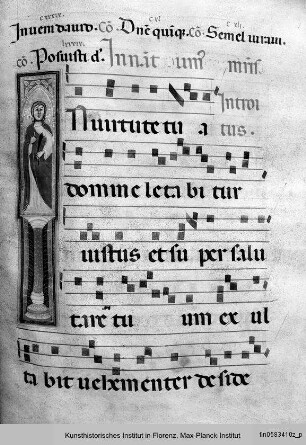 Inueni dauid. Cō. Dnē quīqȝ. Cō. Semel iuraui.
cō. Posuisti dn̄.
Introi
N uirtute tu a
tus.
domine leta bi tur
iustus et su per salu
tare tu um ex ul
ta bit uehementer de side
Kunsthistorisches Institut in Florenz, Max Planck Institut
fln0583410z_p